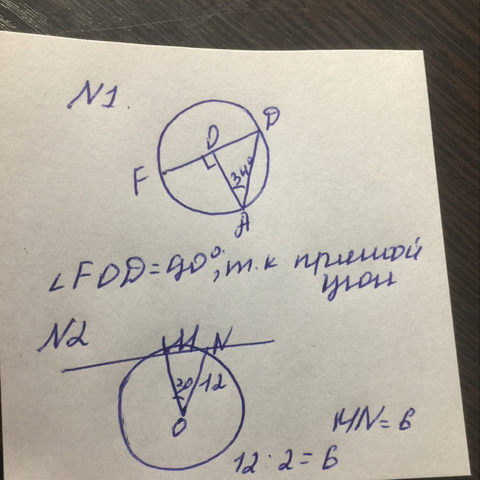 N1.
O D
F 34°
A
∠FOD=90°, т.к прямой
угол
N2
M N
30 12
O
MN=6
12:2=6